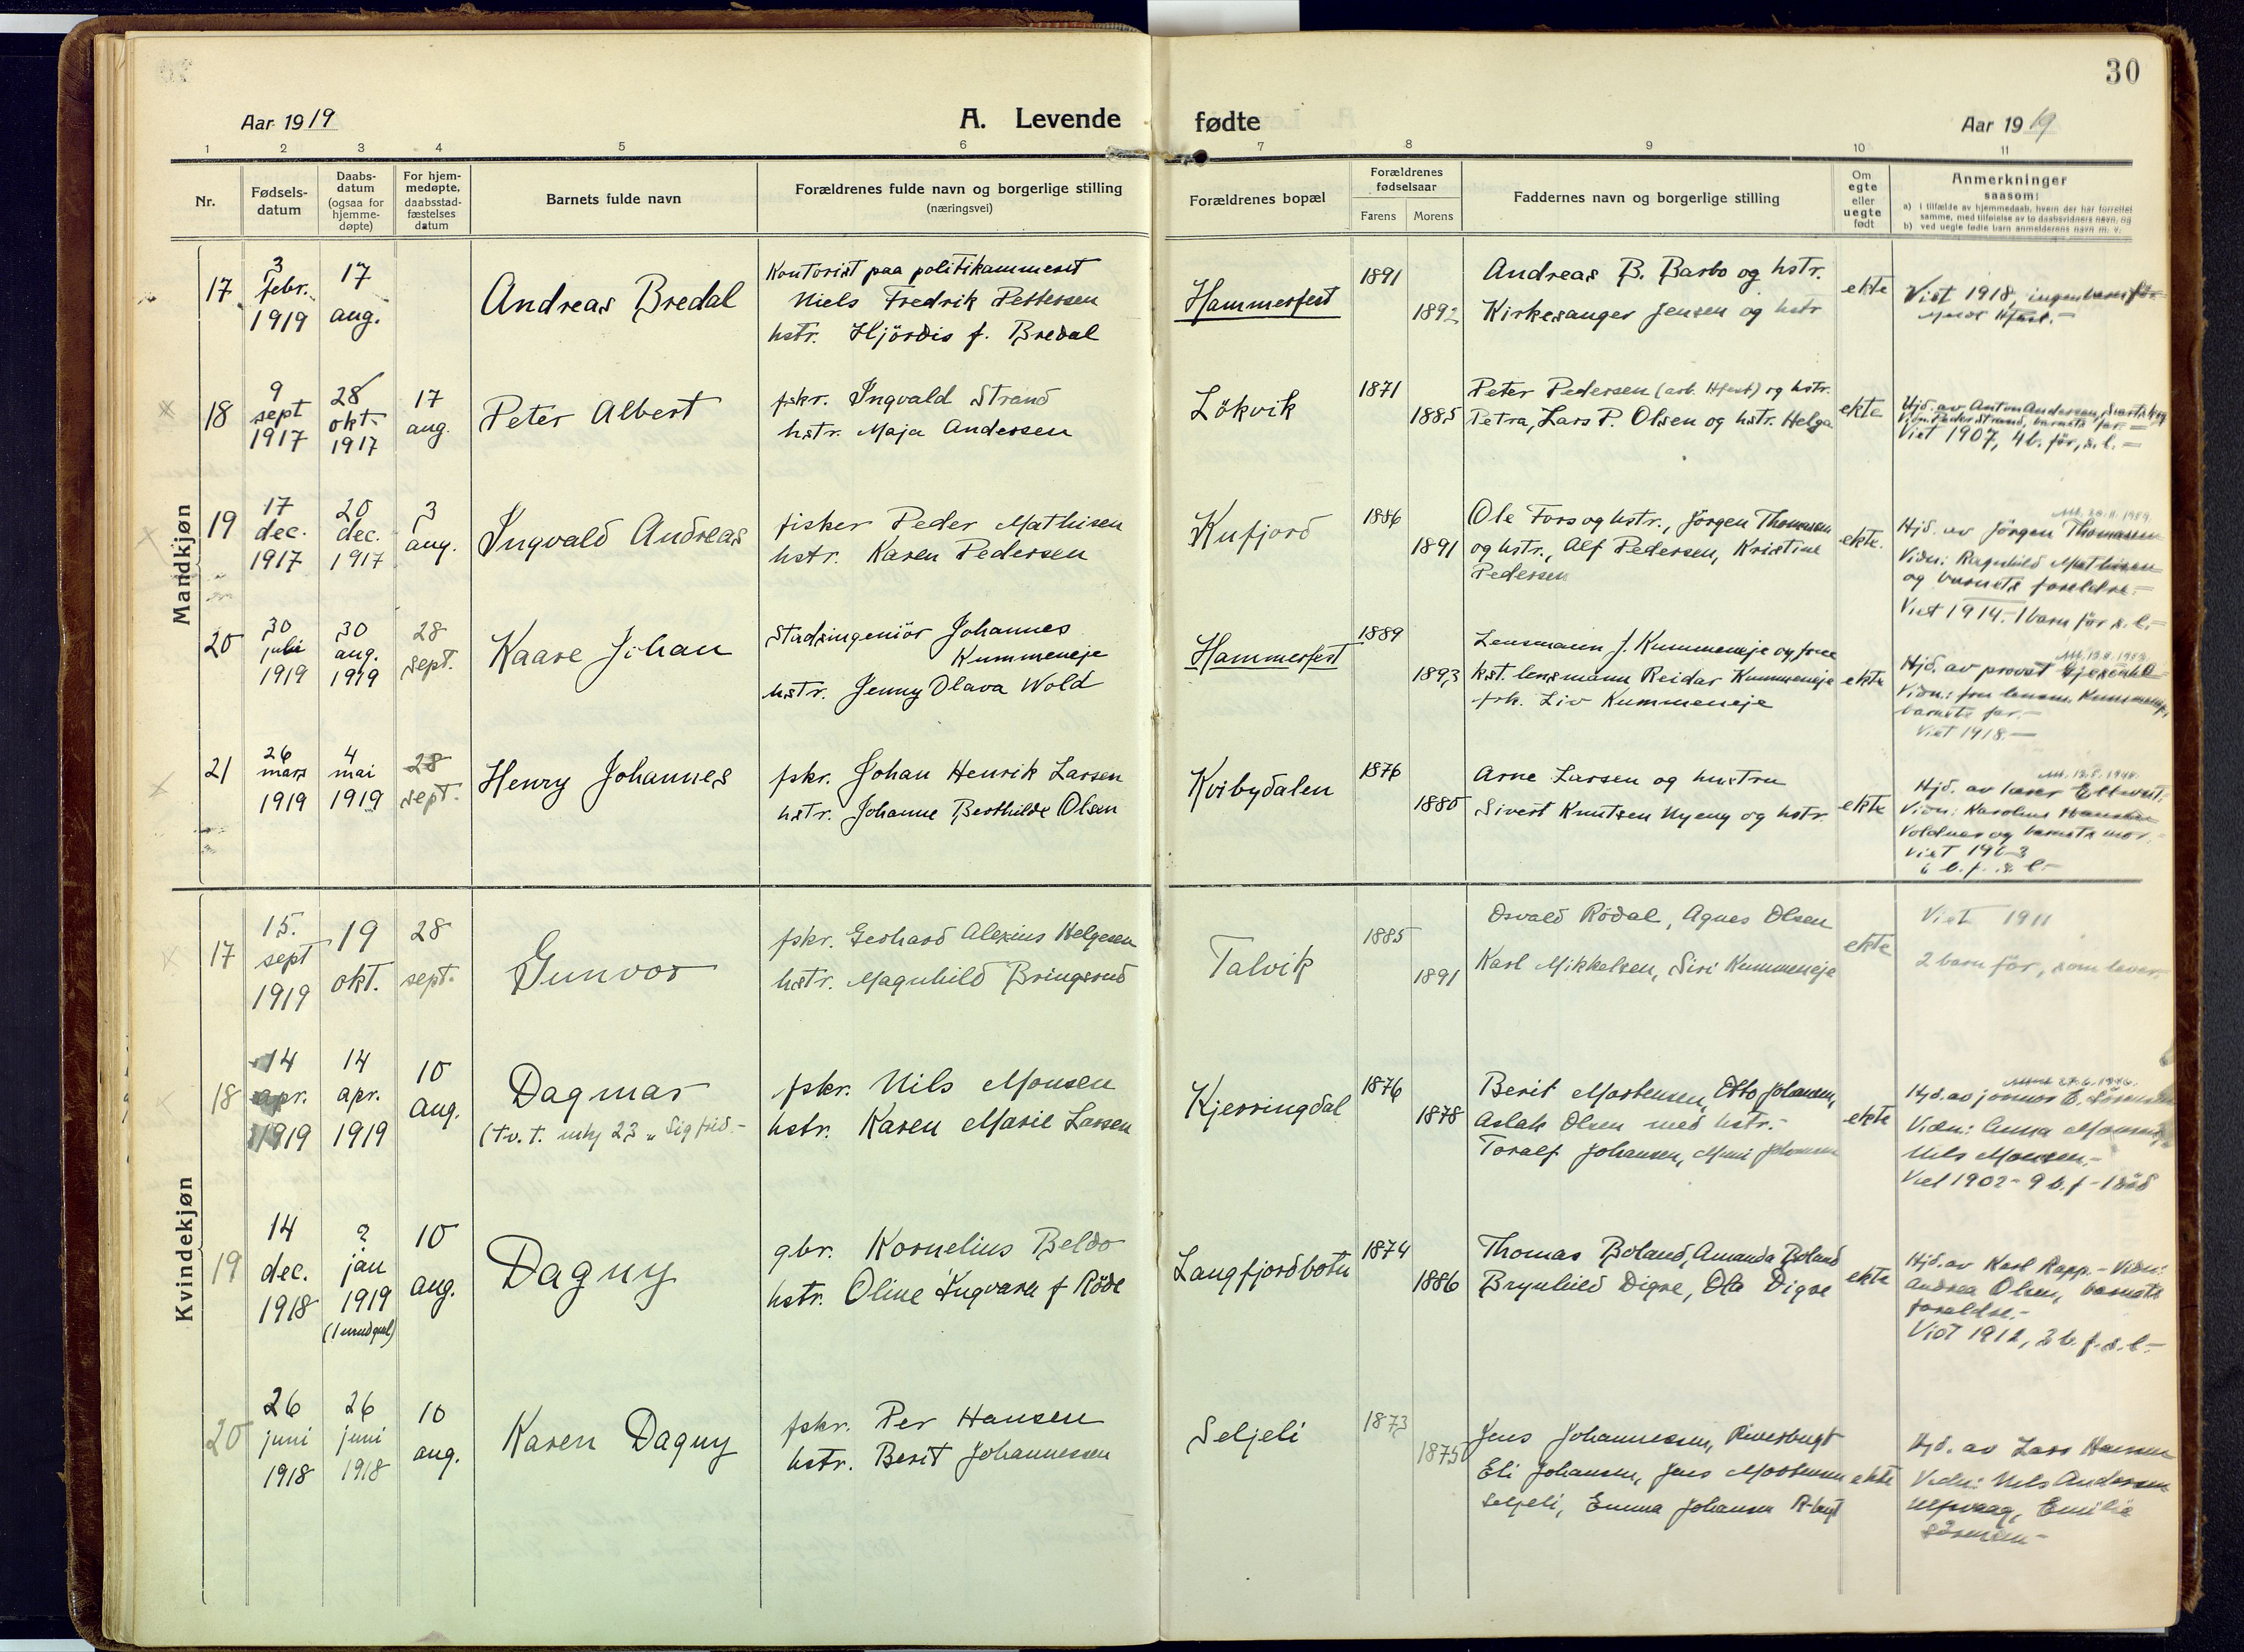 30
Aar 1919
A. Levende fødte
Aar 1919
1 2 3 4 5 6 7 8 9 10 11
Nr.
Fødsels-
datum
Daabs-
datum
(ogsaa for
hjemme-
døpte)
For hjem-
medøpte,
daabsstad-
fæstelses
datum
Barnets fulde navn
Forældrenes fulde navn og borgerlige stilling
(næringsvei)
Forældrenes bopæl
Forældrenes
fødselsaar
Farens Morens
Faddernes navn og borgerlige stilling
Om
egte
eller
uegte
født
Anmerkninger
saasom:
a) i tilfælde av hjemmedaab, hvem der har forrettet
samme, med tilføielse av to daabsvidners navn, og
b) ved uegte fødte barn anmelderens navn m. v.
Mandkjøn
17
3
febr.
1919
17
aug.
Andreas Bredal
Kontorist paa politikammeret
Niels Fredrik Pettersen
hstr. Hjördis f. Bredal
Hammerfest
1891
1892
Andreas B. Barbo og hstr.
Kirkesanger Jensen og hstr
ekte
Viet 1918, ingen barn før
18
9
sept
1917
28
okt.
1917
17
aug.
Peter Albert
fskr. Ingvald Strand
hstr. Maja Andersen
Lökvik
1871
1885
Peter Pedersen (arb. Hfest) og hstr.
Petra, Lars P. Olsen og hstr. Helga
ekte
Hjd. av Anton Andersen,
Vidn. Peder Strand, barnets far.
Viet 1907, 4 b. før, s. l. -
19
17
dec.
1917
20
dec.
1917
3
aug.
Ingvald Andreas
fisker Peder Mathisen
hstr. Karen Pedersen
Kufjord
1886
1891
Ole Fors og hstr., Jörgen Thomassen
og hstr., Alf Pedersen, Kristine
Pedersen
ekte.
Hjd. av Jörgen Thomassen
Vidn: Ragnhild Mathisen
og barnets foreldre. -
Viet 1914. 1 barn før s. l. -
20
30
juli
1919
30
aug.
1919
28
sept.
Kaare Johan
Stadsingeniör Johannes
Kummeneje
hstr. Jenny Olava Wold
Hammerfest
1889
1893
Lensmann J. Kummeneje og frue
kst. lensmann Reidar Kummeneje
frk. Liv Kummeneje
ekte
Hjd. av provst Gjesdahl
Vidn.: fru lensm. Kummeneje,
barnets far. -
Viet 1918. -
21
26
mars
1919
4
mai
1919
28
sept.
Henry Johannes
fskr. Johan Henrik Larsen
hstr. Johanne Berthilde Olsen
Kvibydalen
1876
1880
Arne Larsen og hustru
Sivert Knutsen Nyeng og hstr.
ekte
Hjd. av lærer
Vidn: Karolius Hansen
Voldnes og barnets mor.
Viet 1903
6 b. f. s. l. -
Kvindekjøn
17
15.
sept
1919
19
okt.
28
sept.
Gunvor
fskr. Gerhard Alexius Helgesen
hstr. Magnhild Bringsrud
Talvik
1885
1891
Osvald Rödal, Agnes Olsen
Karl Mikkelsen, Siri Kummeneje
ekte
Viet 1911
2 barn før, som lever.
18
14
apr.
1919
14
apr.
1919
10
aug.
Dagmar
(tv. t. mkj 23 " Sigfrid. -
fskr. Nils Monsen
hstr. Karen Marie Larsen
Kjerringdal
1876
1878
Berit Mortensen, Otto Johansen,
Aslak Olsen med hstr. -
Toralf Johansen,
ekte
Hjd. av jormor E. Sörensen
Vidn: Anna Monsen,
Nils Monsen. -
Viet 1902 - 9 b. f - 1 död
19
14
dec.
1918
?
jan
1919
10
aug.
Dagny
gbr. Kornelius Beldo
hstr. Oline Ingvara f Röde
Langfjordbotn
1874
1886
Thomas Boland, Amanda Boland
Brynhild Digre, Ola Digre
ekte
Hjd. av Karl Rapp. - Vidn:
Andrea Olsen, barnets
foreldre. -
Viet 1912, 3 b. f. s. l. -
20
26
juni
1918
26
juni
1918
10
aug.
Karen Dagny
fskr. Per Hansen
hstr. Berit Johannessen
Seljeli
1873
1875
Jens Johannessen, Riverbugt
Eli Johansen, Jens Mortensen
Seljeli, Emma Johansen R-bugt
ekte
Hjd. av Lars Hansen
Vidn: Nils Andersen
Ulfsvaag, Emilie
Sörensen -